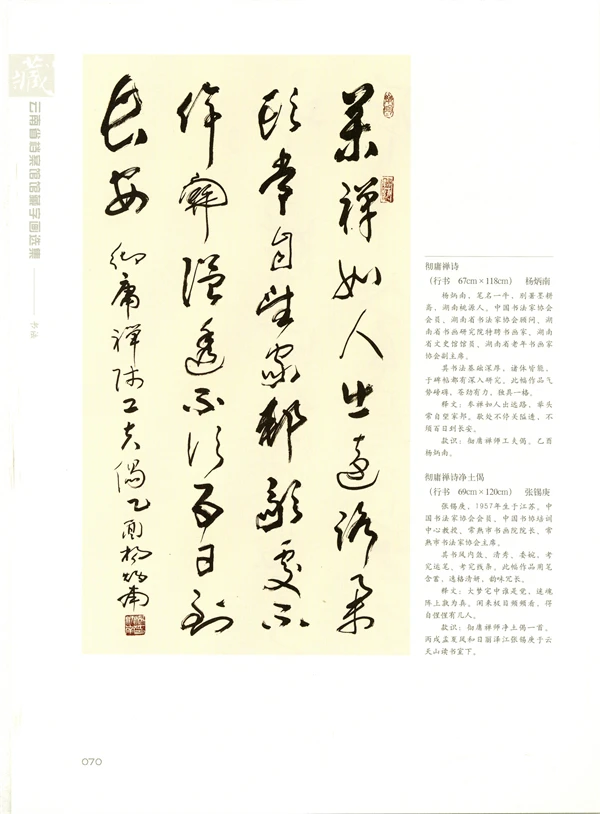 藏
云南省档案馆馆藏字画选集
書法
參禪如人出遠路舉
頭常自望家邦歇處不
停關隘透不須百日到
長安
徹庸禪師工夫偈乙酉楊炳南
彻庸禅诗
(行书 67cm×118cm) 杨炳南
杨炳南,笔名一牛,别署墨耕斋,湖南桃源人。中国书法家协会
会员、湖南省书法家协会顾问、湖
南省书画研究院特聘书画家、湖南
省文史馆馆员、湖南省老年书画家
协会副主席。
其书法基础深厚,诸体皆能,
于碑帖都有深入研究。此幅作品气
势磅礴,苍劲有力,独具一格。
释文:参禅如人出远路,举头
常自望家邦。歇处不停关隘透,不
须百日到长安。
款识:彻庸禅师工夫偈。乙酉
杨炳南。
彻庸禅诗净土偈
(行书 69cm×120cm) 张锡庚
张锡庚,1957年生于江苏。中
国书法家协会会员、中国书协培训
中心教授、常熟市书画院院长、常
熟市书法家协会主席。
其书风内敛、清秀、委婉,考
究运笔、考究线条。此幅作品用笔
含蓄,逸格清妍,韵味冗长。
释文:大梦宅中谁是觉,迷魂
阵上孰为真。闲来杖目频频看,得
自惺惺有几人。
款识:彻庸禅师净土偈一首。
丙戌孟夏风和日丽泽江张锡庚于云
天山读书室下。
070